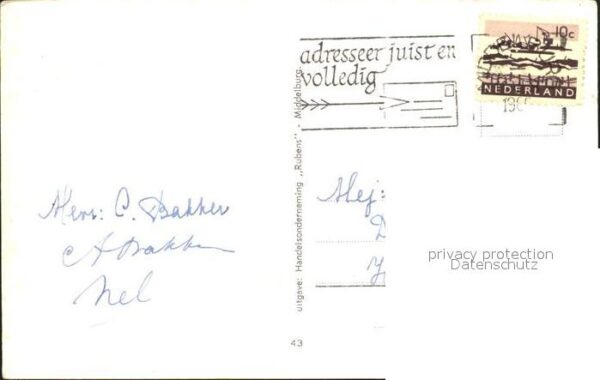 adresseer juist en
volledig
10c
NEDERLAND
196
uitgave: Handelsonderneming „Rubens" - Middelburg.
Mevr: C. Bakker
A Bakker
Nel
Mej:
privacy protection
Datenschutz
43